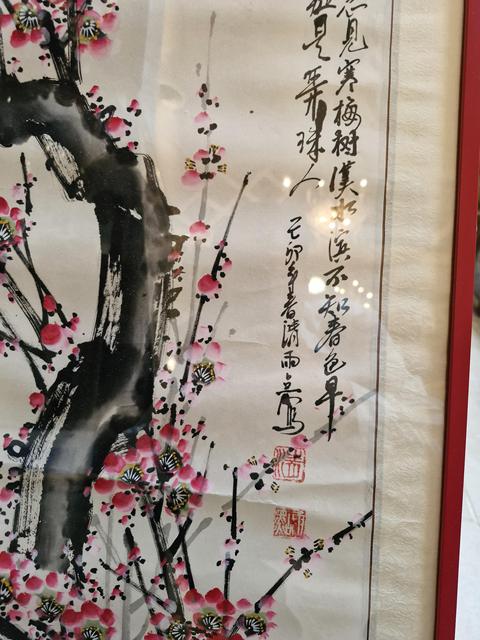 忽见寒梅树漢水滨不知春色早
疑是弄珠人
己卯年春清雨